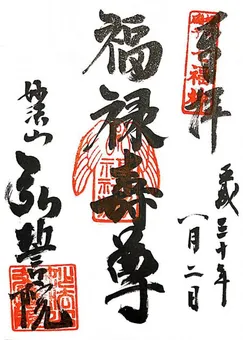 奉拝
平成三十年
一月二日
福禄寿尊
妙法山
弘誓院